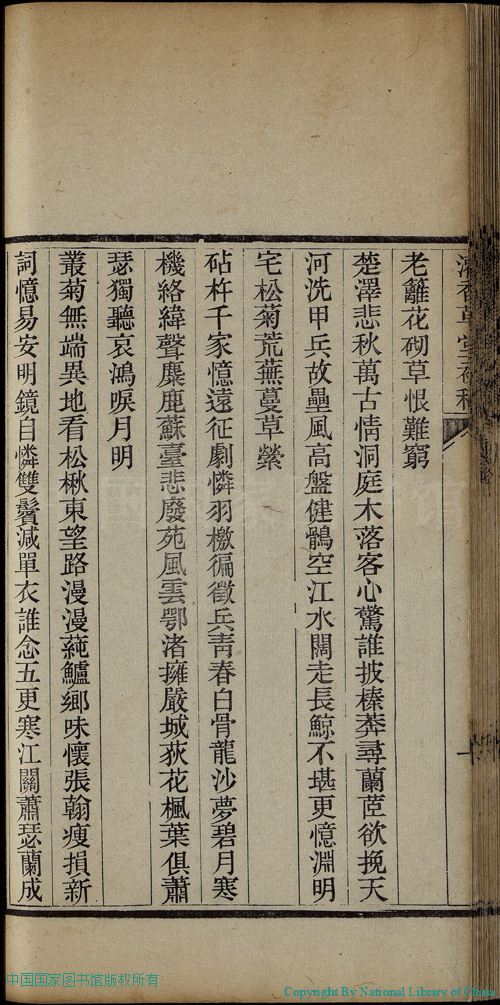 老籬花砌草恨難窮
楚澤悲秋萬古情洞庭木落客心驚誰披榛莽尋蘭茝欲挽天
河洗甲兵故壘風高盤健鶻空江水闊走長鯨不堪更憶淵明
宅松菊荒蕪蔓草縈
砧杵千家憶遠征劇憐羽檄徧徵兵青春白骨龍沙夢碧月寒
機絡緯聲麋鹿蘇臺悲廢苑風雲鄂渚擁嚴城荻花楓葉俱蕭
瑟獨聽哀鴻唳月明
叢菊無端異地看松楸東望路漫漫蒓鱸鄉味懷張翰瘦損新
詞憶易安明鏡自憐雙鬢減單衣誰念五更寒江關蕭瑟蘭成
中国国家图书馆版权所有
Copyright By National Library of China